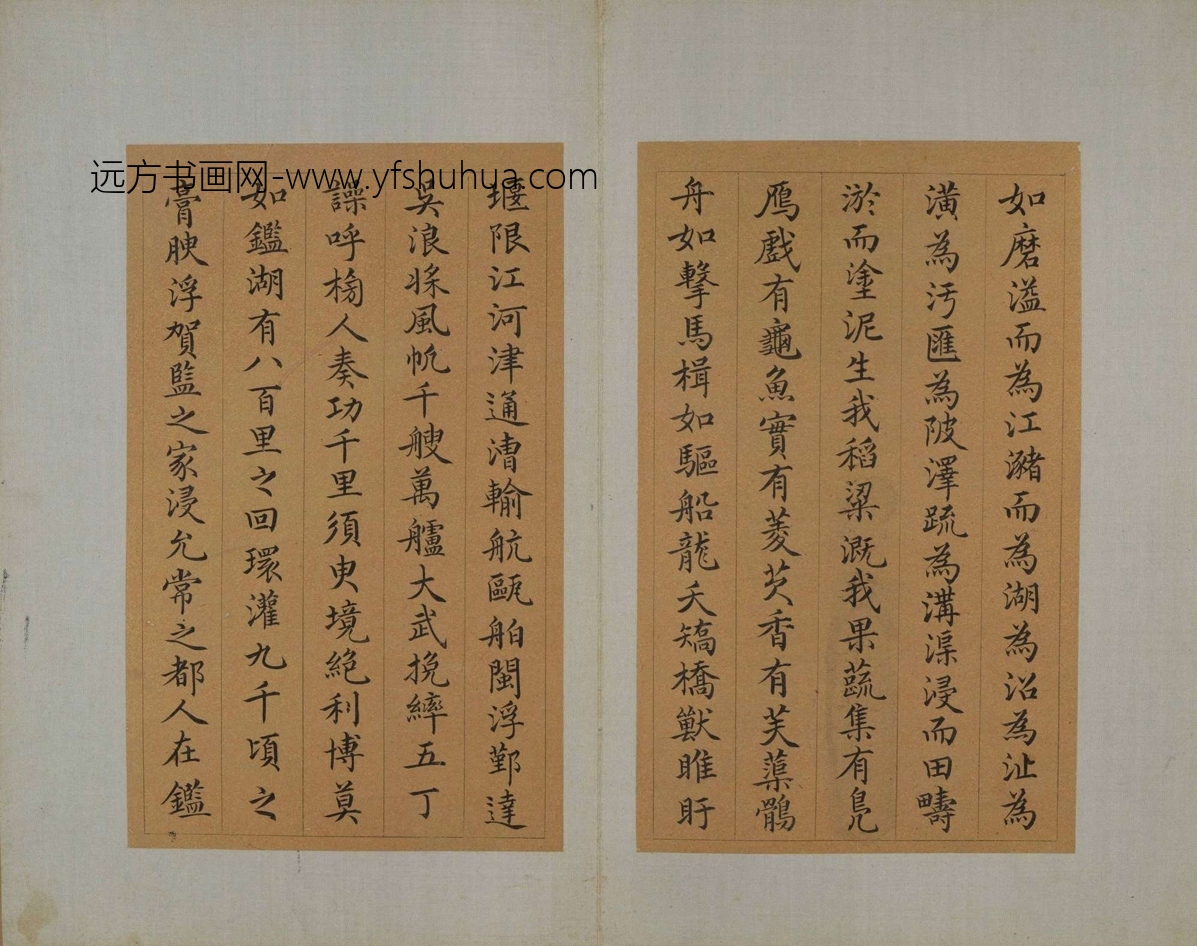 远方书画网-www.yfshuhua.com
如磨溢而為江瀦而為湖為沼為沚為
潢為汚匯為陂澤疏為溝渠浸而田疇
淤而塗泥生我稻粱溉我果蔬集有鳧
鴈戲有龜魚實有菱芡香有芙蕖鷁
舟如擊馬楫如驅船龍夭矯橋獸睢盱
堰限江河津通漕輸航甌舶閩浮鄞達
吳浪槳風帆千艘萬艫大武挽繂五丁
譟呼榜人奏功千里須臾境絕利博莫
如鑑湖有八百里之回環灌九千頃之
膏腴浮賀監之家浸允常之都人在鑑